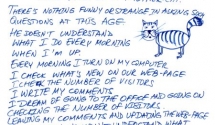 THERE'S NOTHING FUNNY OR STRANGE IN ASKING SUCH
QUESTIONS AT THIS AGE.
HE DOESN'T UNDERSTAND
WHAT I DO EVERY MORNING
WHEN I'M UP.
EVERY MORNING I TURN ON MY COMPUTER
I CHECK WHAT'S NEW ON OUR WEB-PAGE
I CHECK THE NUMBER OF VISITORS
I WRITE MY COMMENTS
I DREAM OF GOING TO THE OFFICE AND GOING ON
CHECKING THE NUMBER OF VISITORS
LEAVING MY COMMENTS AND UPDATING THE WEB-PAGE
UNDERSTAND WHAT